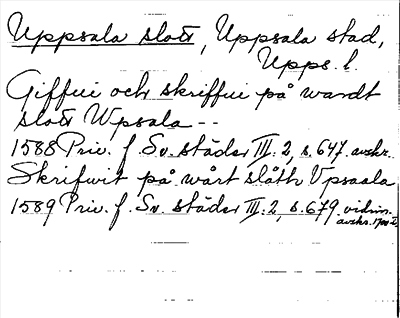 Uppsala slott, Uppsala stad,
Upps. l.
Giffui och skriffui på wardt
slott Wpsala --
1588 Priv. f. Sv. städer III: 2, s. 647. avskr.
Skrifwit på wårt slåth Vpsaala
1589 Priv. f. Sv. städer III: 2, s. 679. vidim.
avskr. 1700 t.